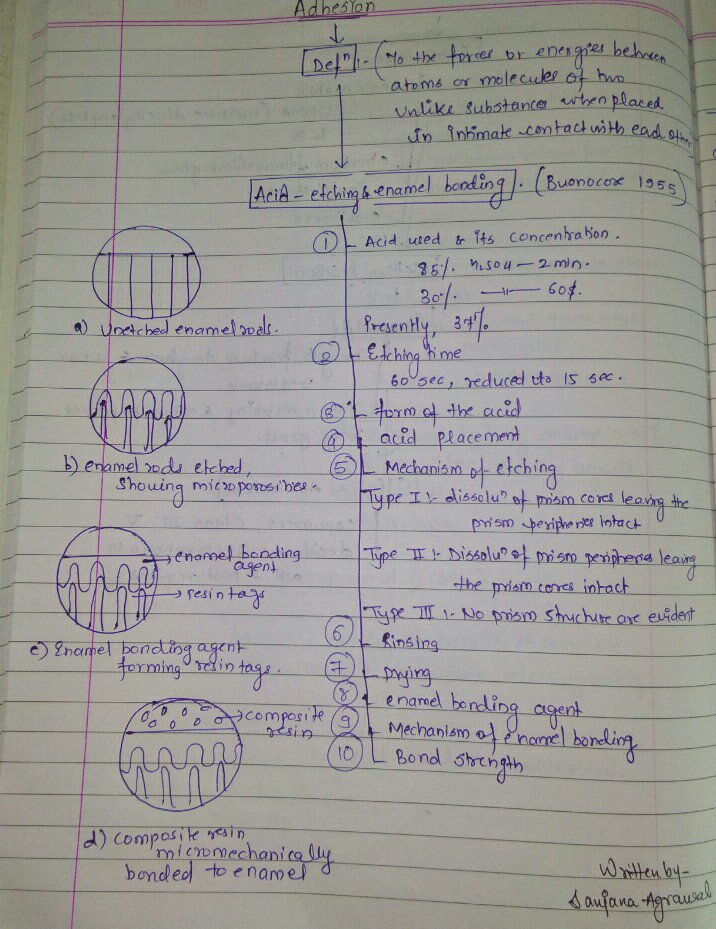 Adhesion
Defn :- (To the forces or energies between
atoms or molecules of two
unlike substances when placed
in intimate contact with each other
Acid - etching & enamel bonding . (Buonocore 1955)
① Acid used & its concentration .
85% H2SO4 - 2 min.
30% —11— 60s.
Presently, 37%
a) Unetched enamel rods.
② Etching time
60 sec, reduced to 15 sec.
③ form of the acid
④ acid placement
⑤ Mechanism of etching
b) enamel rods etched,
showing microporosities -
Type I :- dissolun of prism cores leaving the
prism peripheries intact
Type II :- Dissolun of prism peripheries leaving
the prism cores intact
Type III :- No prism structure are evident
enamel bonding
agent
resin tags
c) Enamel bonding agent
forming resin tags.
⑥ Rinsing
⑦ Drying
⑧ enamel bonding agent
⑨ Mechanism of enamel bonding
⑩ Bond strength
composite
resin
d) composite resin
micromechanically
bonded to enamel
Written by-
Sanjana Agrawal